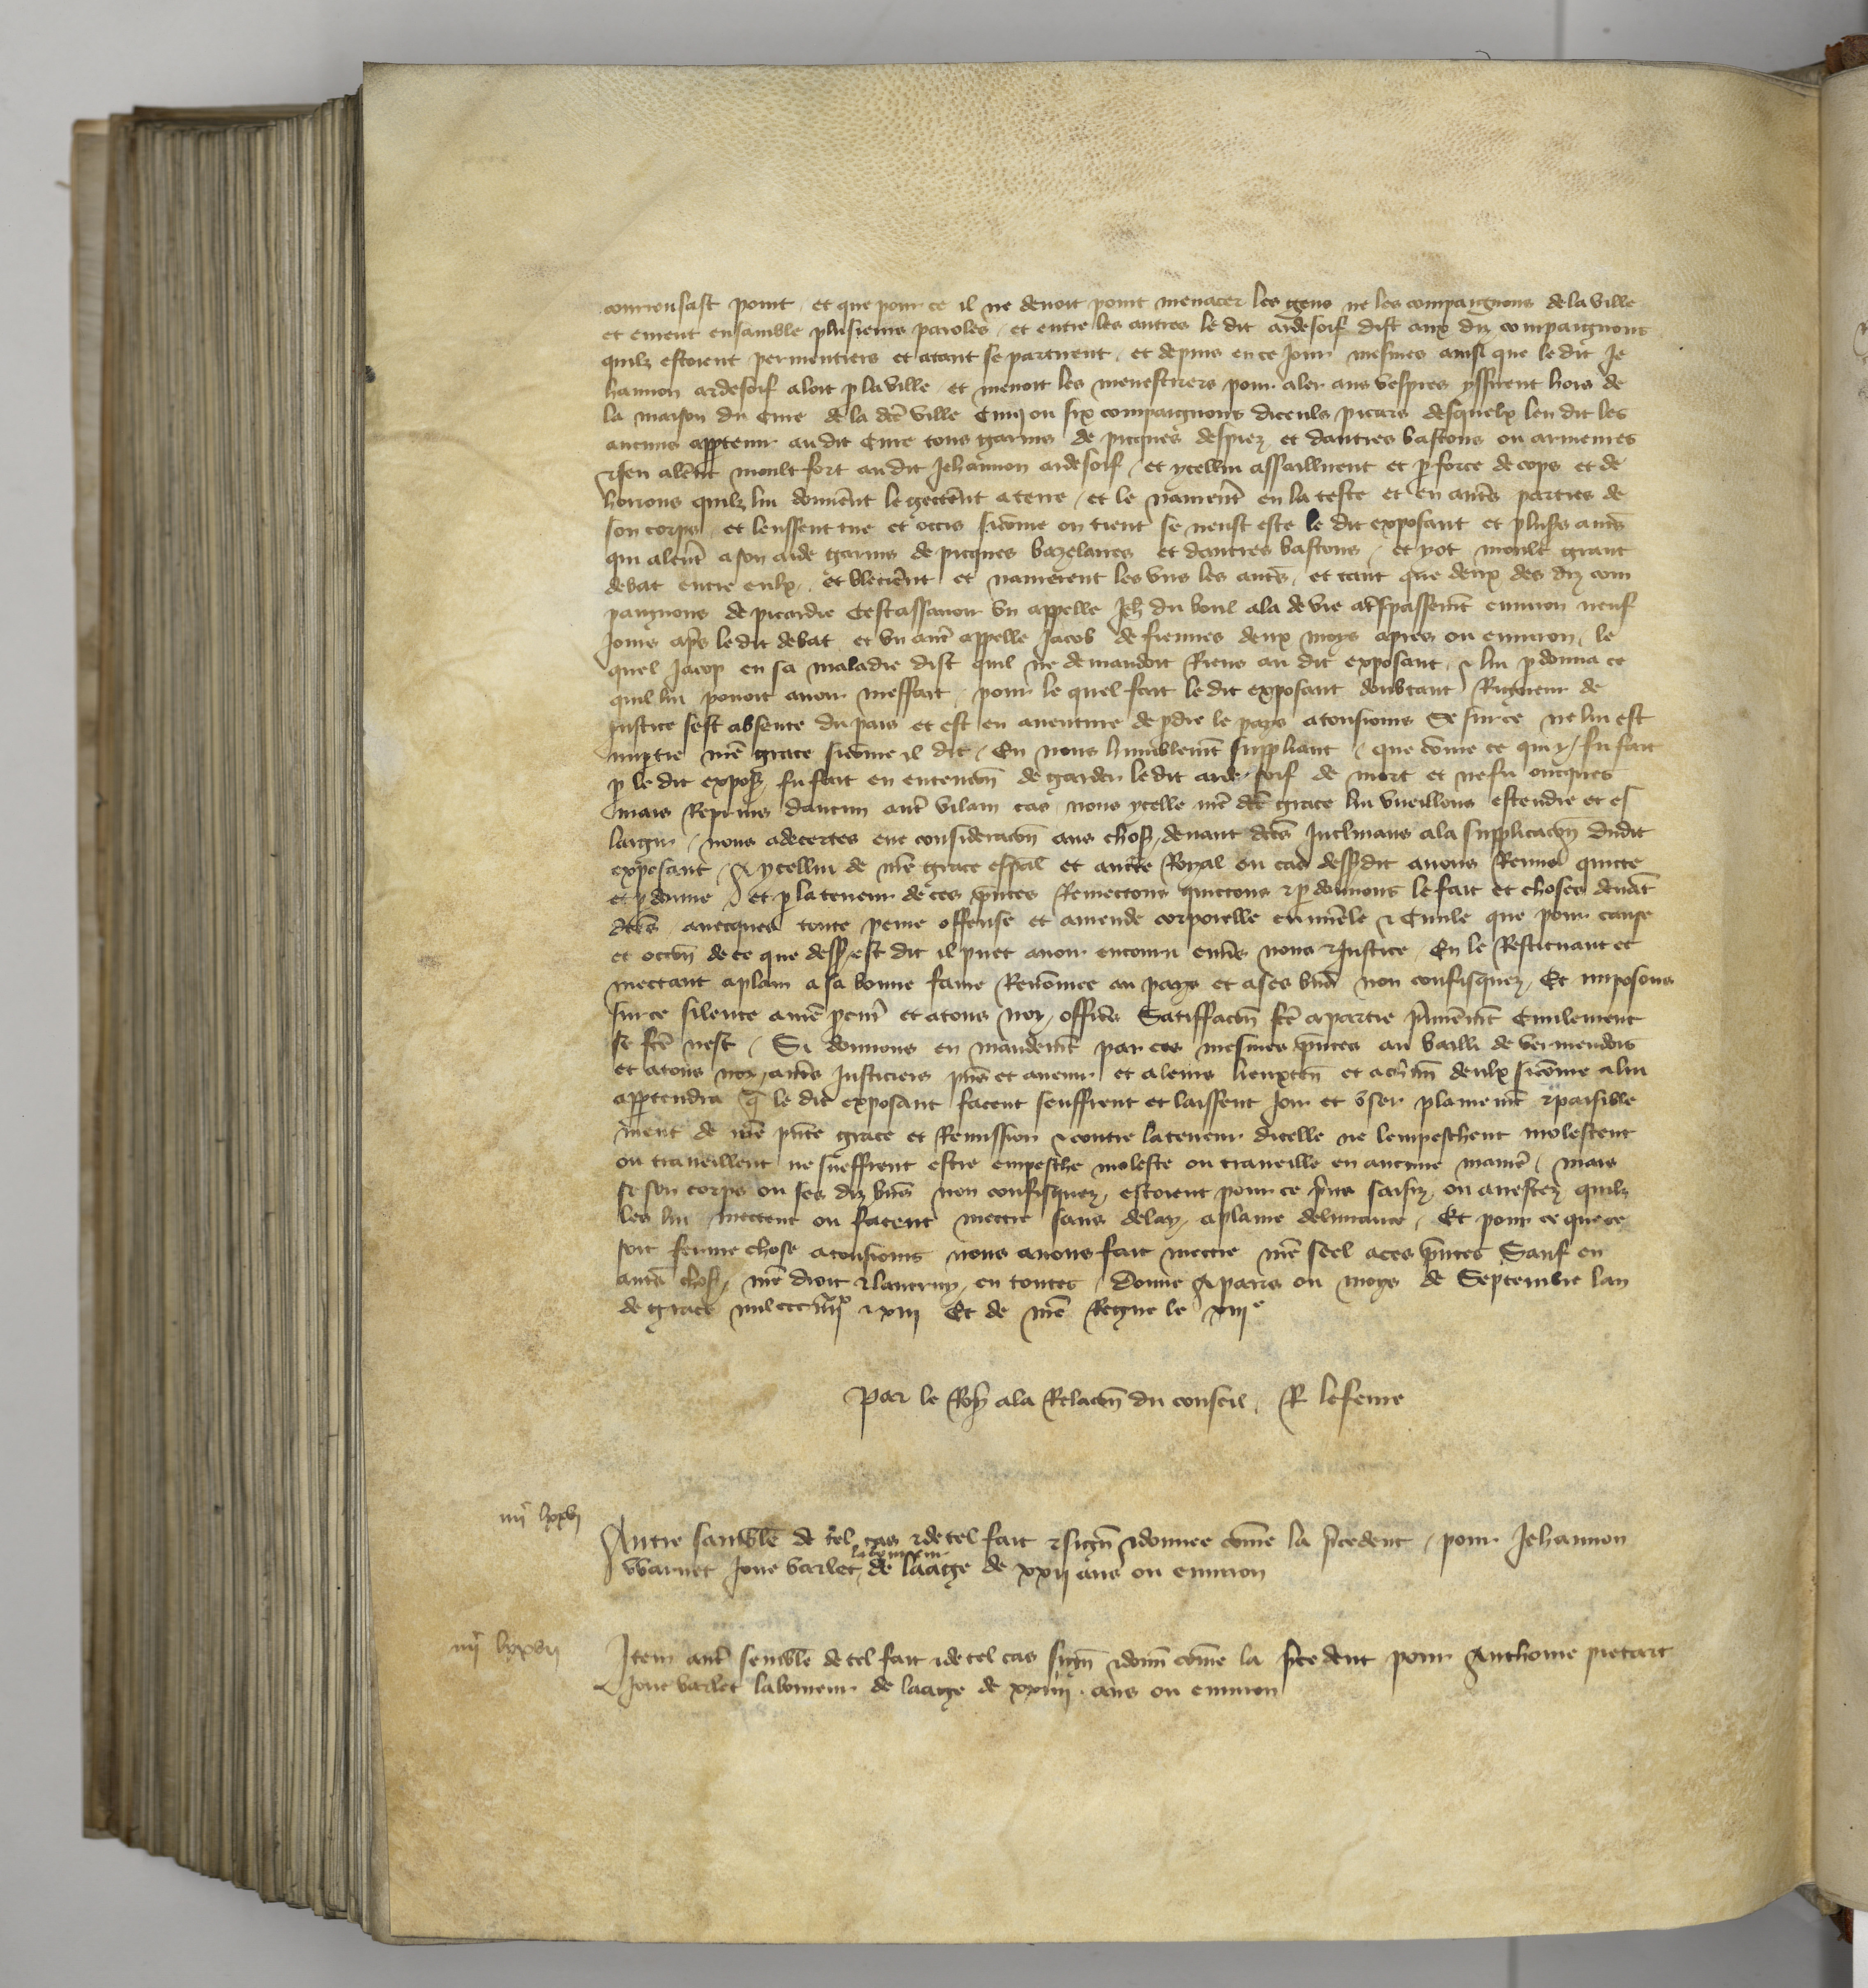 courrousast point et que pour ce il ne devoit point menacer les gens ne les compaignons de la ville
et eurent ensamble plusieurs paroles et entre les autres le dit ardesoif dist aux diz compaignons
quilz estoient parmentiers et atant se partirent et depuis en ce jour mesmes ainsi que le dit Je
hannon ardesoif aloit p la ville et menoit les menestrers pour aler aus vespres yssirent hors de
la maison du Cure de la dce ville Cinq ou six compaignons diceuls picars desquelx len dit les
aucuns appartenir au dit Cure tous garnis de picques despiez et dautres bastons ou armeures
& sen alerent moult fort au dit Jehannon ardesoif et ycellui assaillirent et p force de cops et de
horions quilz lui donnerent le getterent a terre et le navrerent en la teste et en autres parties de
son corps et leussent tue et occis sicome on tient se neust este le dit exposant et plusrs autrs
qui alerent a son aide garnis de picques bazelaires et dautres bastons et yot moult grant
debat entre eulx et blecierent et navrerent les uns les autrs et tant que deux des diz com
paignons de picardie Cestassavoir un appelle Jeh du boul ala de vie a trespassemt environ neuf
jours aps le dit debat et un autre appelle Jacob de fiennes deux moys apres ou environ le
quel Jacop en sa maladie dist quil ne demandoit Riens au dit exposant & lui pdonna ce
quil lui povoit avoir meffait pour le quel fait le dit exposant doubtant Rigueur de
justice sest absente du pais et est en aventure de pdre le pays a tousjours Se sur ce ne lui est
impartie nre grace sicome il dit En nous humblemt suppliant que come ce quil y fu fait
p le dit expos fu fait en entencion de garder le dit arde soif de mort et ne fu oncques
mais Reprins daucun autre vilain cas nous ycelle nre dce grace lui vueillons estendre et es
largir nous adecertes eue consideracion aus chos devant dces Inclinans a la supplicacion dudit
exposant A ycellui de nre grace espal et auctte Royal ou cas dessdit avons Remis quicte
et pdonne et p la teneur de ces pntes Remectons quictons & pdonnons le fait et choses devat
dces avecques toute peine offense et amende corporelle criminele & Civile que pour cause
et occon de ce que dess est dit il puet avoir encouru envs nous & Justice En le Restituant et
mectant a plain a sa bonne fame Renomee au pays et a ses bns non confisquez Et imposons
sur ce silence a nre procur et a tous noz officrs Satiffaction fce a partie primemt Civilement
se fce nest Si donnons en mandemt par ces mesmes pntes au bailli de vermendois
et a tous noz autrs Justiciers pns et avenir et a leurs lieuxten et a chun deulx sicome a lui
appartendra q le dit exposant facent seuffrent et laissent joir et user plainemt & paisible
ment de nre pnte grace et Remission & contre la teneur dicelle ne lempeschent molestent
ou traveillent ne sueffrent estre empesche moleste ou traveille en aucune manie mais
se son corps ou ses diz bns non confisquez estoient pour ce pris saisiz ou arrestez quilz
les lui mectent ou facent mectre sans delay a plaine delivrance Et pour ce que ce
soit ferme chose a tousjours nous avons fait mectre nre seel a ces pntes Sauf en
autrs chos nre droit & lautruy en toutes Donne A paris ou moys de Septembre lan
de grace mil ccc iiiixx & xiii Et de nre Regne le xiiie
Par le Roy a la Relacion du conseil R Lefevre
iiic lxxvi
Autre samble de tel cas & de tel fait & sign & donnee come la pcedent pour Jehannon
laboureur
warnet Jone varlet de laage de xxii ans ou environ
iiic lxxvii
Item autre semble de tel fait & de tel cas sign & donn come la pcedent pour Anthoine pietart
Jone varlet laboureur de laage de xxiiii ans ou environ